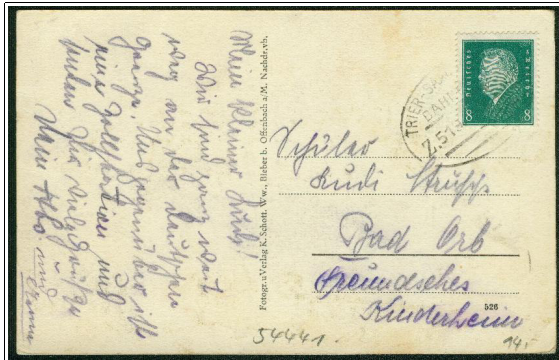 Mein kleiner Rudi!
Wir sind ganz weit
weg an der deutschen
Grenze. Uns gegenüber ist
eine Zollstation und
Dein
und
Fotogr. u Verlag K. Schott. Ww., Bieber b. Offenbach a/M. Nachdr. vb.
Deutsches Reich
8 8
TRIER-SAA
BAHN
7.5.19
Schüler
Rudi
Bad Orb
Freundsches
Kinderheim
526
54441.
14.-